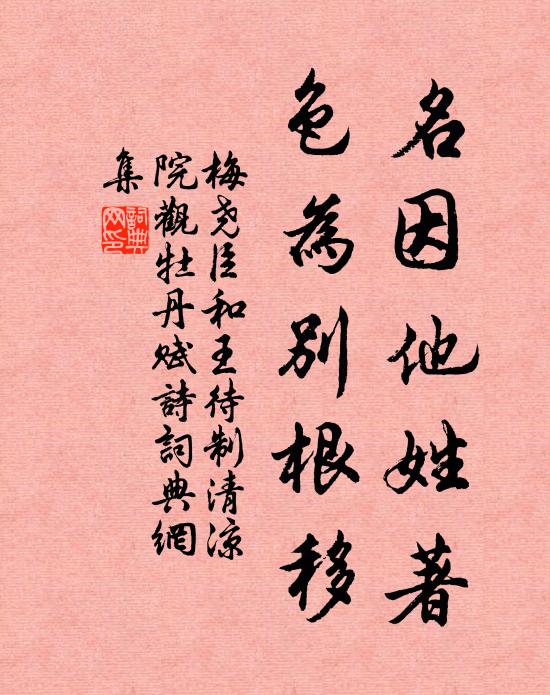 名因他姓著
色為別根移
梅堯臣和王待制清涼
院觀牡丹賦詩詞典網
集
詞典網印